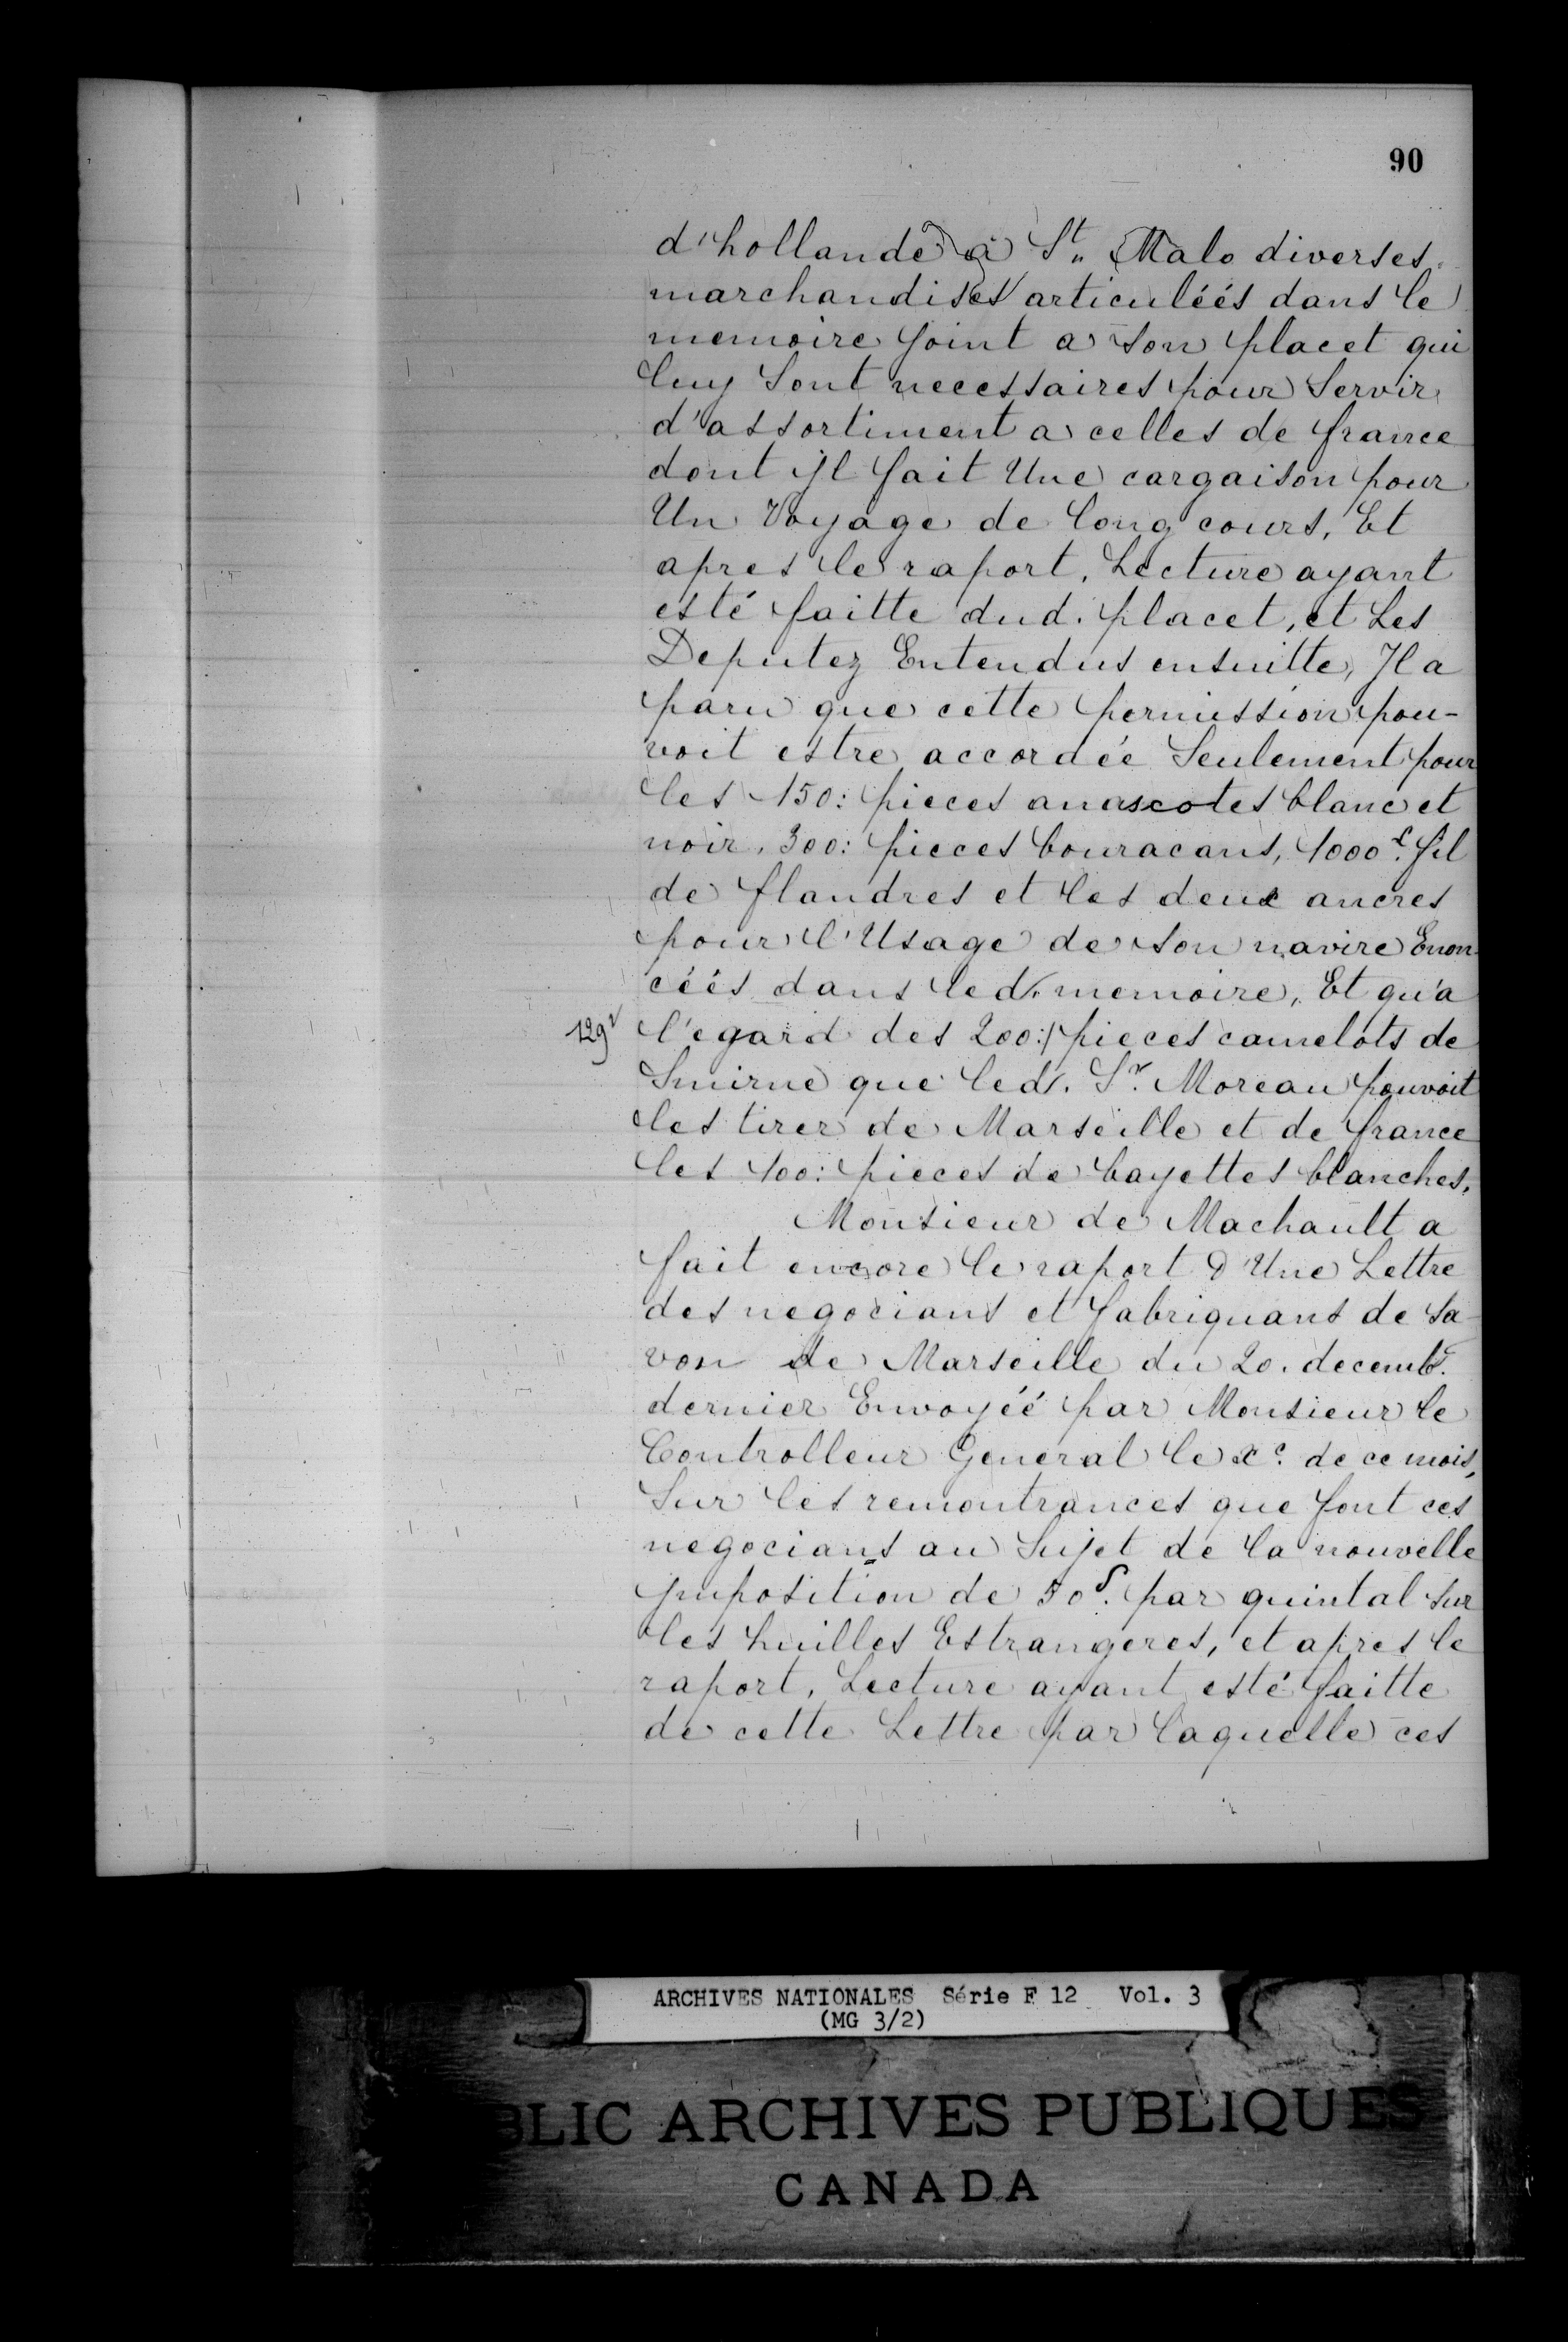 90
d'hollande à St. Malo diverses
marchandises articuléés dans le
memoire joint a son placet qui
luy Sont necessaires pour Servir
d'assortiment a celles de france
dont jl fait Une cargaison pour
Un Voyage de long cours, Et
apres le raport, Lecture ayant
esté faitte dud. placet, et Les
Deputez Entendus ensuitte, Jl a
paru que cette permission pou-
voit estre accordée Seulement pour
les 150: pieces anascotes blanc et
noir, 300: pieces bouracans, 1000£. fil
de flandres et les deux ancres
pour l'Usage de son navire Enon-
céés dans led. memoire, Et qu'a
129v l'egard des 200:/ pieces camelots de
Smirne que led. Sr. Moreau pouvoit
les tirer de Marseille et de france
les 100: pieces de bayettes blanches,
Monsieur de Machault a
fait encore le raport d'Une Lettre
des negocians et fabriquans de sa-
von de Marseille du 20. decembr.
dernier Envoyéé par Monsieur le
Controlleur General le xe. de ce mois,
Sur les remontrances que font ces
negocians au Sujet de la nouvelle
jmposition de 50s. par quintal sur
les huilles Estrangeres, et apres le
raport, Lecture ayant esté faitte
de cette Lettre par laquelle ces
ARCHIVES NATIONALES Série F 12 Vol. 3
(MG 3/2)
BLIC ARCHIVES PUBLIQUES
CANADA